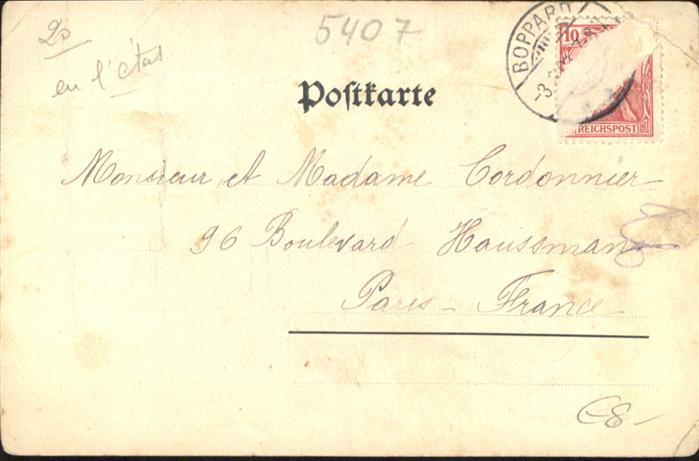 20
en l'état
5407
BOPPARD
10
REICHSPOST
Postkarte
Monsieur et Madame Cordonnier
96 Boulevard Haussmann
Paris - France
C8-